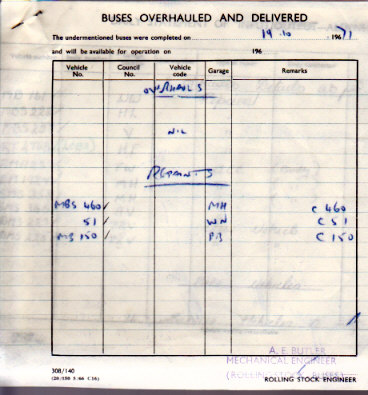 BUSES OVERHAULED AND DELIVERED
The undermentioned buses were completed on 19.10 19671
and will be available for operation on 196
Vehicle No. Council No. Vehicle code Garage Remarks
OVERHAULS
NIL
REPAINTS
MBS 460/ MH C 460
51/ WN C 51
MB 150/ PB C 150
A. E. BUTLER
MECHANICAL ENGINEER
(ROLLING STOCK BUSES)
308/140
ROLLING STOCK ENGINEER